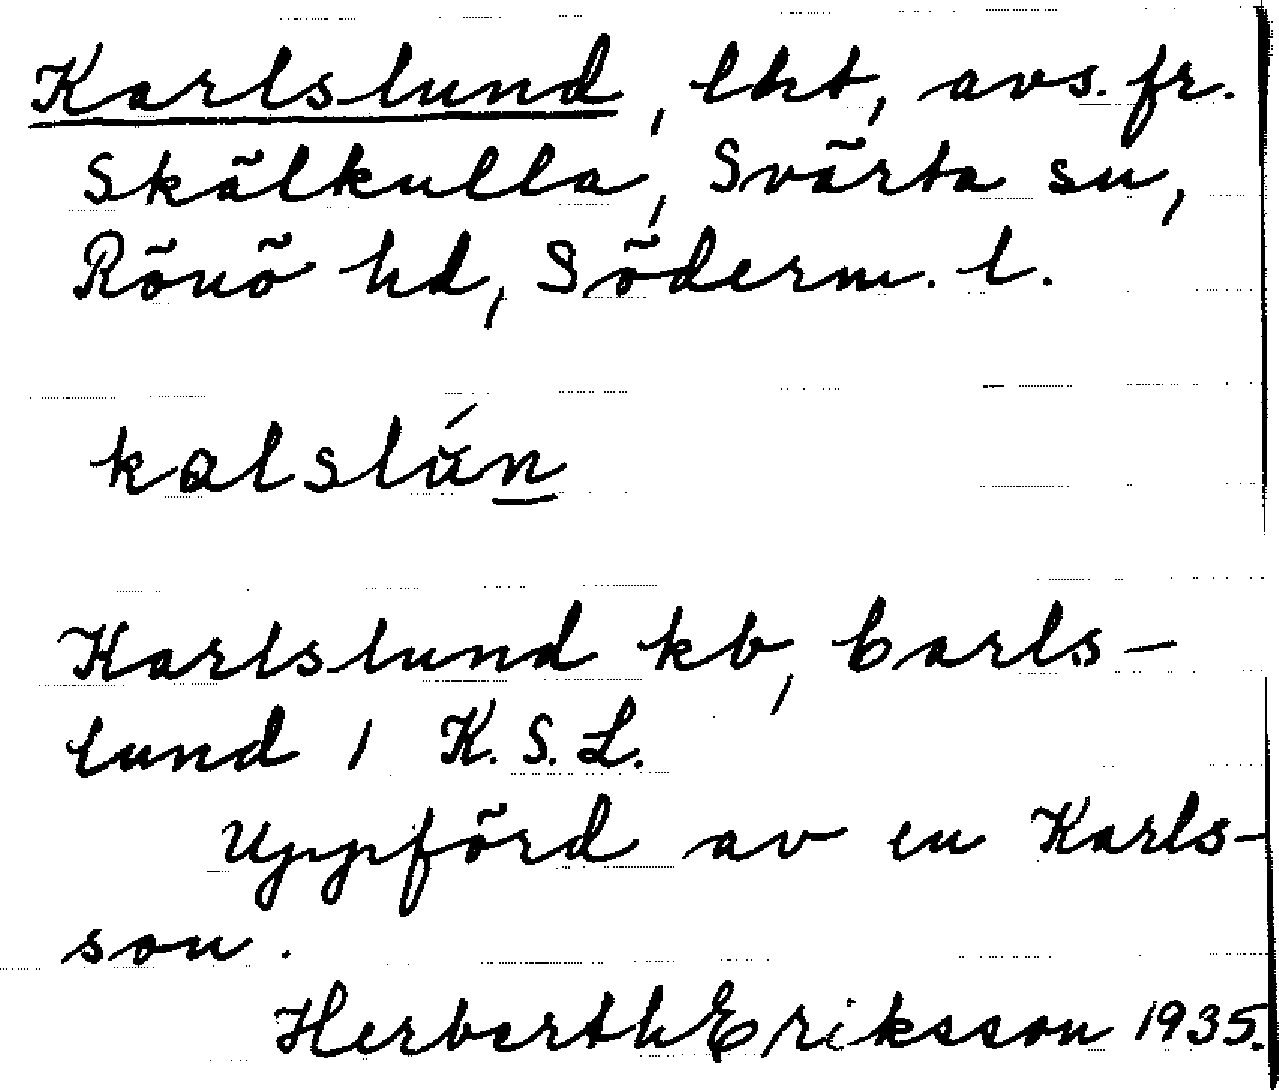 Karlslund, lht, avs. fr.
Skälkulla, Svärta sn,
Rönö hd, Söderm. l.
kalslún
Karlslund kb, Carls-
lund 1 K.S.L.
Uppförd av en Karls-
son.
Herberth Eriksson 1935.